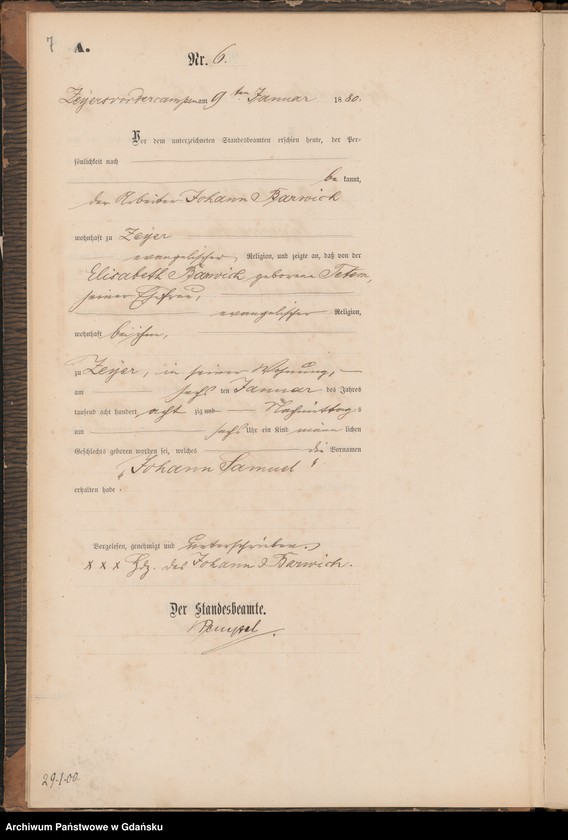 7
A.
Nr. 6.
Zeyersvordercampen am 9 ten Januar 1880.
Vor dem unterzeichneten Standesbeamten erschien heute, der Per-
sönlichkeit nach
be kannt,
der Arbeiter Johann Barwich
wohnhaft zu Zeyer
evangelischer Religion, und zeigte an, daß von der
Elisabeth Barwich geborene Tetem,
seiner Ehefrau,
evangelischer Religion,
wohnhaft bei ihm,
zu Zeyer, in seiner Wohnung,
am sechs ten Januar des Jahres
tausend acht hundert acht zig und Nachmittags
um sechs Uhr ein Kind männ lichen
Geschlechts geboren worden sei, welches die Vornamen
„Johann Samuel“
erhalten habe.
Vorgelesen, genehmigt und unterschrieben
x x x Hdz. des Johann Barwich.
Der Standesbeamte.
29-1-00
Archiwum Państwowe w Gdańsku